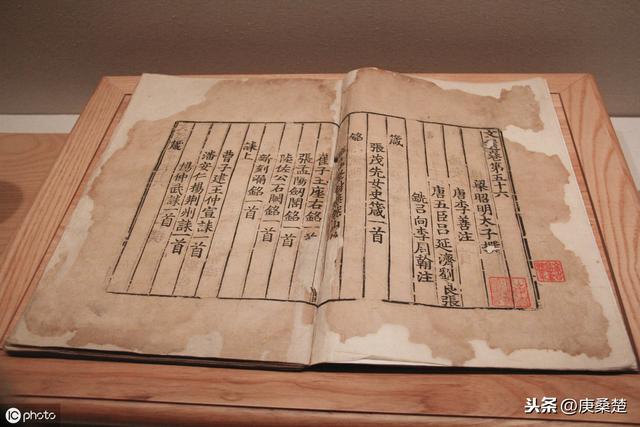 文選卷第五十六
梁昭明太子撰
唐李善注
唐五臣呂延濟劉良張
銑呂向李周翰注
箴
張茂先女史箴一首
銘
崔子玉座右銘一首
張孟陽劒閣銘一首
陸佐公石闕銘一首
新刻漏銘一首
誄上
曹子建王仲宣誄一首
潘安仁楊荊州誄一首
楊仲武誄一首
箴
iC photo
头条 @庚桑楚